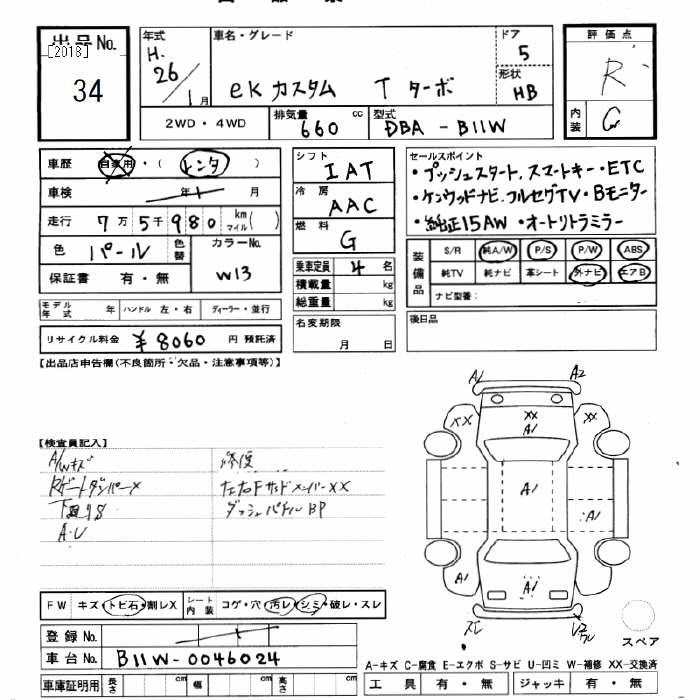 出品No.
[2013]
34
年式
H.
26/1月
車名・グレード
eKカスタム T ターボ
ドア
5
形状
HB
評価点
R
内装
C
2WD・4WD
排気量
660
cc
型式
DBA-B11W
車歴 自家用・(レンタ)
車検 年 月
走行 7万5千980 km マイル( )
色 パール 色替
カラーNo.
W13
保証書 有・無
モデル年式 年 ハンドル 左・右 ディーラー・並行
リサイクル料金 ¥8060 円 預託済
シフト
IAT
冷房
AAC
燃料
G
乗車定員 4 名
積載量 kg
総重量 kg
名変期限
月 日
セールスポイント
・プッシュスタート、スマートキー・ETC
・ケンウッドナビ、フルセグTV・Bモニター
・純正15AW・オートリトラミラー
装備品
S/R 純A/W P/S P/W ABS
純TV 純ナビ 革シート 外ナビ エアB
ナビ型番:
後日品
【出品店申告欄(不良箇所・欠品・注意事項等)】
【検査員記入】
A/Wキズ
Rゲートダンパー×
下廻りS
A・U
修復
左右Fサイドメンバー××
ダッシュパネルBP
A1
A2
XX
XX
A1
XX
A1
A1
A1
A1
スレ
FW キズ・トビ石・割レX
シート内装 コゲ・穴・汚レ・シミ・破レ・スレ
登録No.
車台No. B11W-0046024
車庫証明用 長さ cm 幅 cm 高さ cm
スペア
A-キズ C-腐食 E-エクボ S-サビ U-凹ミ W-補修 XX-交換済
工具 有・無 ジャッキ 有・無